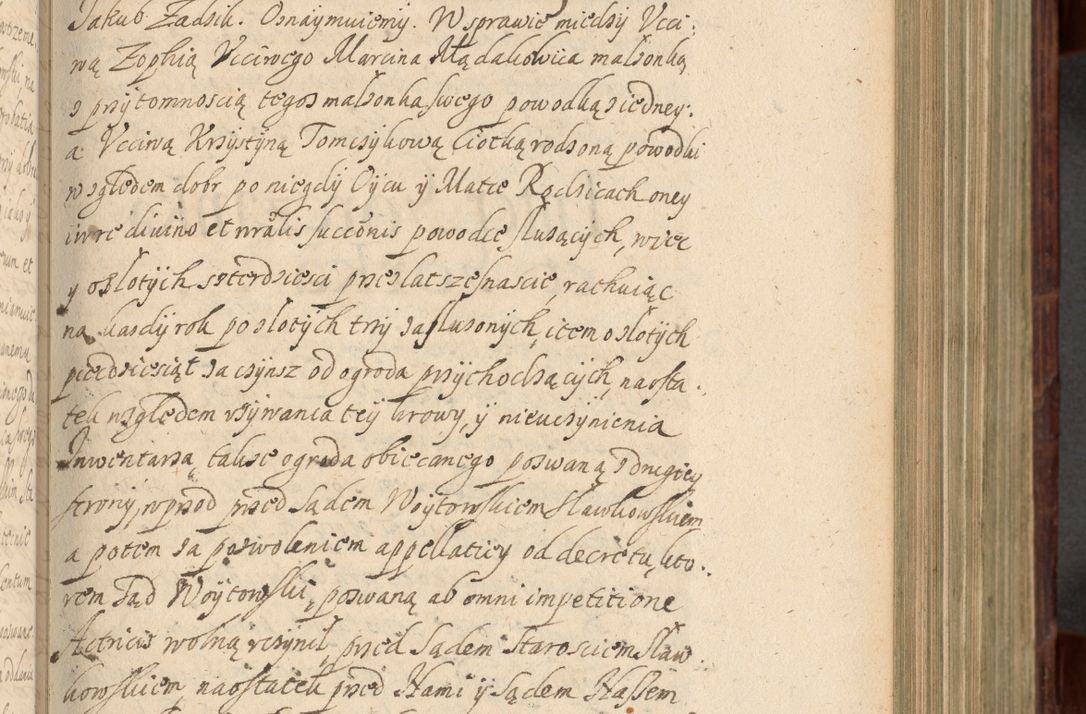 Jakub Zadsik. Osnaymuiemy. W sprawie miedsy Ucci:
wą Zophią Ucciwego Marcina Mądakowica malsonką
s prsytomnoscią tegos malsonka swego powodką s iedney:
a Ucciwą Krsystyną Tomcsykową Ciotką rodsoną powodki
wsględem dobr po niegdy Oycu y Matce Rodsicach oney
iure divino et nralis succonis powodce slusących, wiec
y o slotych scterdsiesci pres lat szesnascie, rachuiąc
na kasdy rok po slotych trsy saslusonych, item o slotych
piecdsiesiąt sa csynsz od ogroda prsychodsących, na osta:
tek wsględem vsywania tey krowy, y nieucsynienia
Inwentarsa, takse ogroda obiecanego poswaną s drugiey
strony, wprsod prsed sądem Woytowskiem Sławkowskiem
a potem sa poswoleniem appellaticy od decretu, kto:
rem Sąd Woytowski, poswaną ab omni impetitione
Actricis wolną vcsynił, prsed Sądem Starosciem Sław:
kowskiem, na ostatek prsed Nami y Sądem Nassem